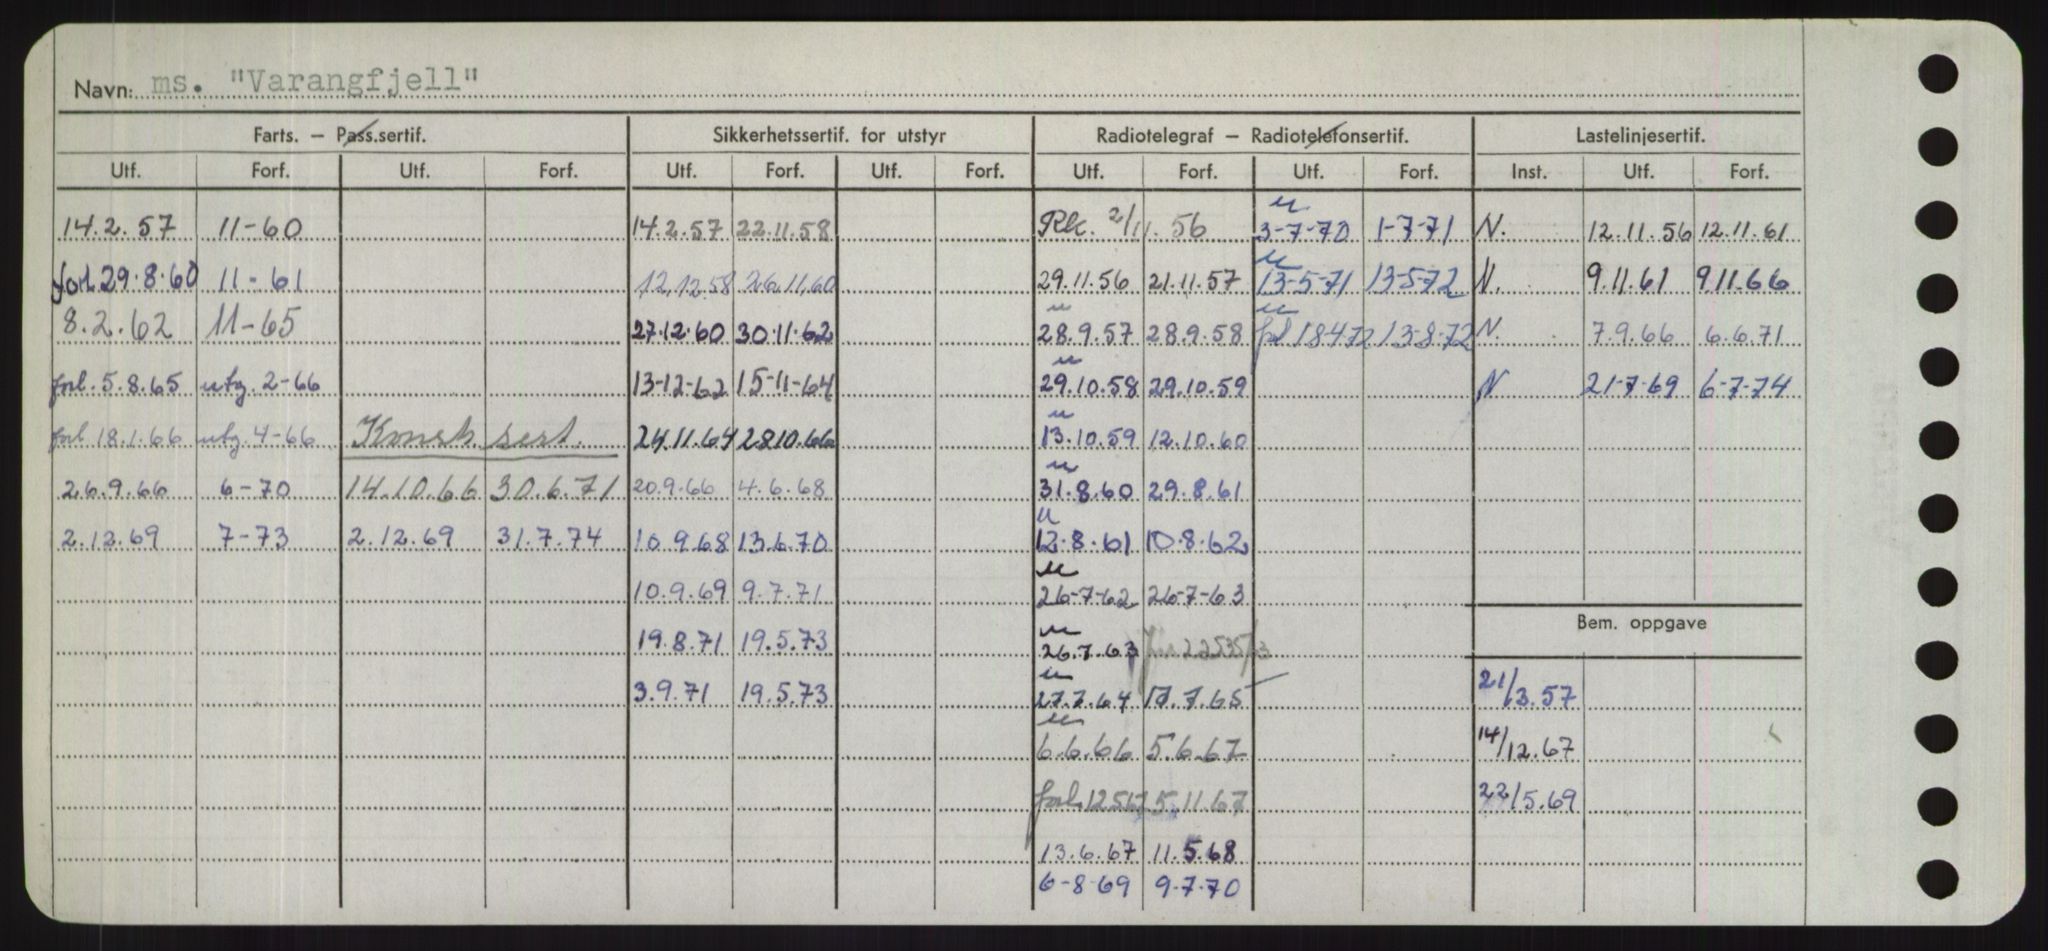 Navn: ms. "Varangfjell"
Farts. – Pass.sertif. Sikkerhetssertif. for utstyr Radiotelegraf – Radiotelefonsertif. Lastelinjesertif.
Utf. Forf. Utf. Forf. Utf. Forf. Utf. Forf. Utf. Forf. Utf. Forf. Inst. Utf. Forf.
14.2.57 11-60 14.2.57 22.11.58 Rk. 2/11.56 u 3-7-70 1-7-71 N. 12.11.56 12.11.61
forl. 29.8.60 11-61 12.12.58 26.11.60 29.11.56 21.11.57 u 13-5-71 13-5-72 N. 9.11.61 9.11.66
8.2.62 11-65 27.12.60 30.11.62 u 28.9.57 28.9.58 u fol 18472 13-8-72 N. 7.9.66 6.6.71
forl. 5.8.65 utg. 2-66 13-12-62 15-11-64 u 29.10.58 29.10.59 N 21-7-69 6-7-74
forl 18.1.66 utg. 4-66 Konstr sert. 24.11.64 28.10.66 u 13.10.59 12.10.60
26.9.66 6-70 14.10.66 30.6.71 20.9.66 4.6.68 u 31.8.60 29.8.61
2.12.69 7-73 2.12.69 31.7.74 10.9.68 13.6.70 u 12.8.61 10.8.62
10.9.69 9.7.71 u 26-7-62 26-7-63
Bem. oppgave
19.8.71 19.5.73 u 26.7.63
3.9.71 19.5.73 u 27.7.64 17.7.65 21/3.57
u 6.6.66 5.6.67 14/12.67
forl. 12567 5.11.67 22/5.69
13.6.67 11.5.68
6-8-69 9.7.70